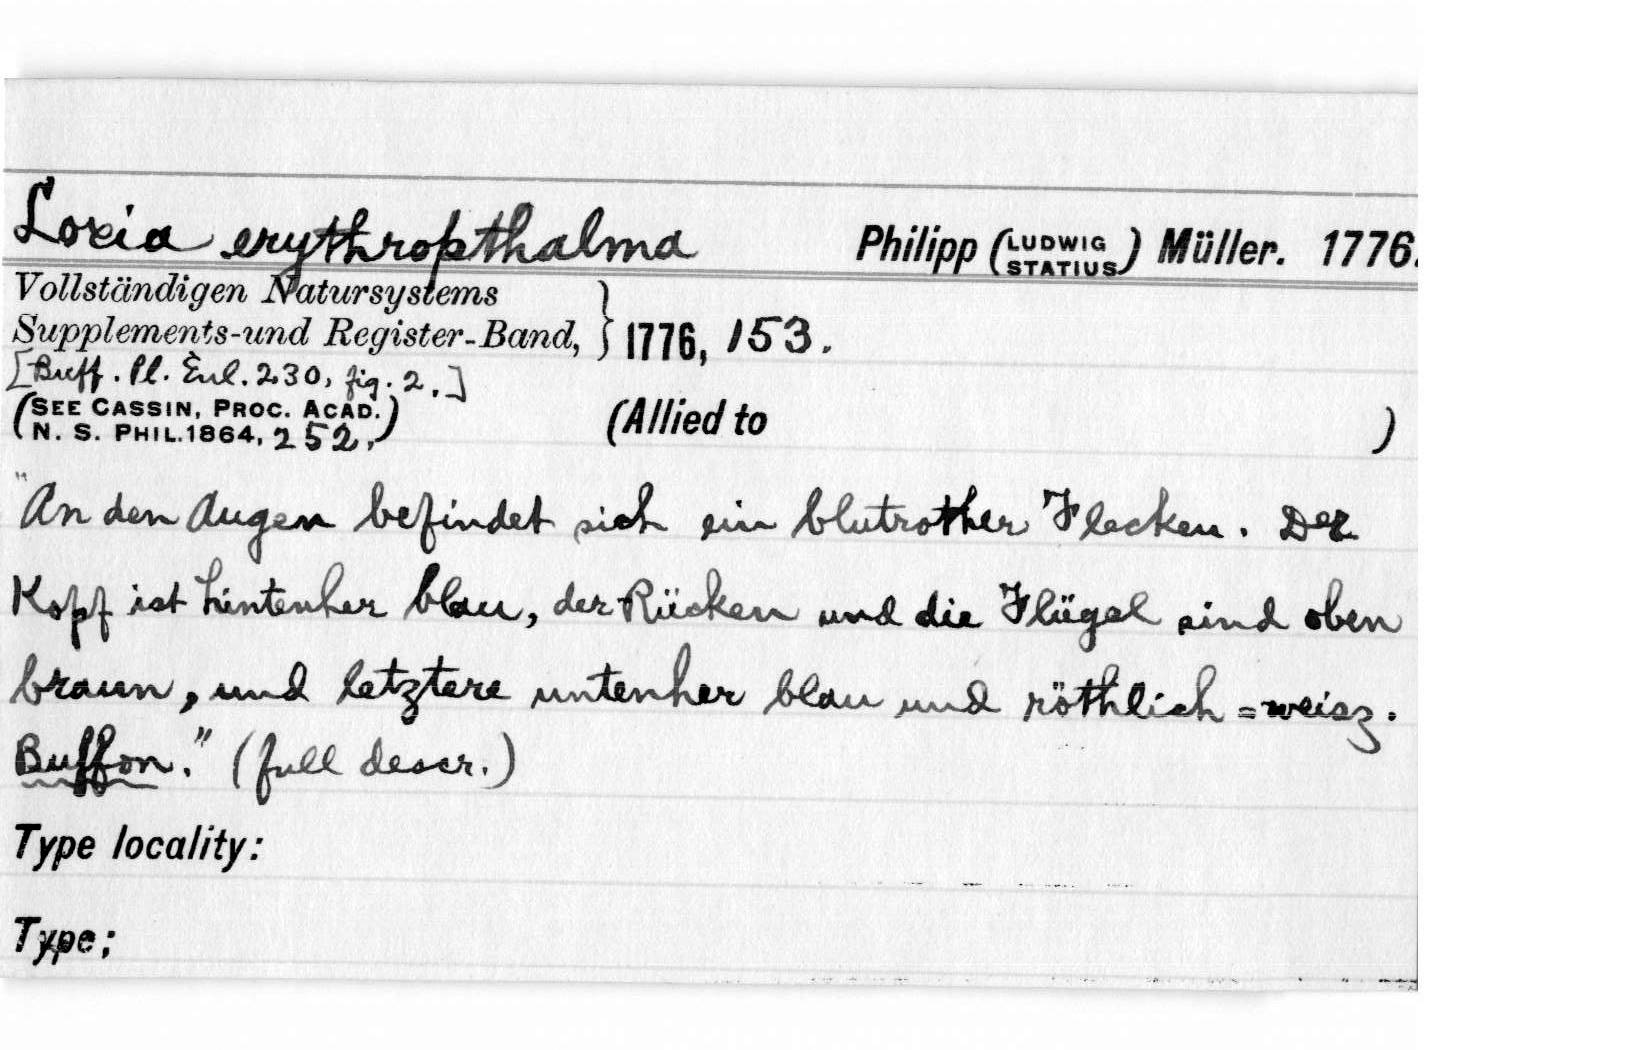 Loxia erythropthalma Philipp (LUDWIG STATIUS) Müller. 1776.
Vollständigen Natursystems
Supplements-und Register-Band, } 1776, 153.
[Buff. Pl. Enl. 230, fig. 2.]
(SEE CASSIN, PROC. ACAD.
N. S. PHIL. 1864, 252,) (Allied to )
"An den Augen befindet sich ein blutrother Flecken. Der
Kopf ist hintenher blau, der Rücken und die Flügel sind oben
braun, und letztere untenher blau und röthlich=weisz.
Buffon." (full descr.)
Type locality:
Type;